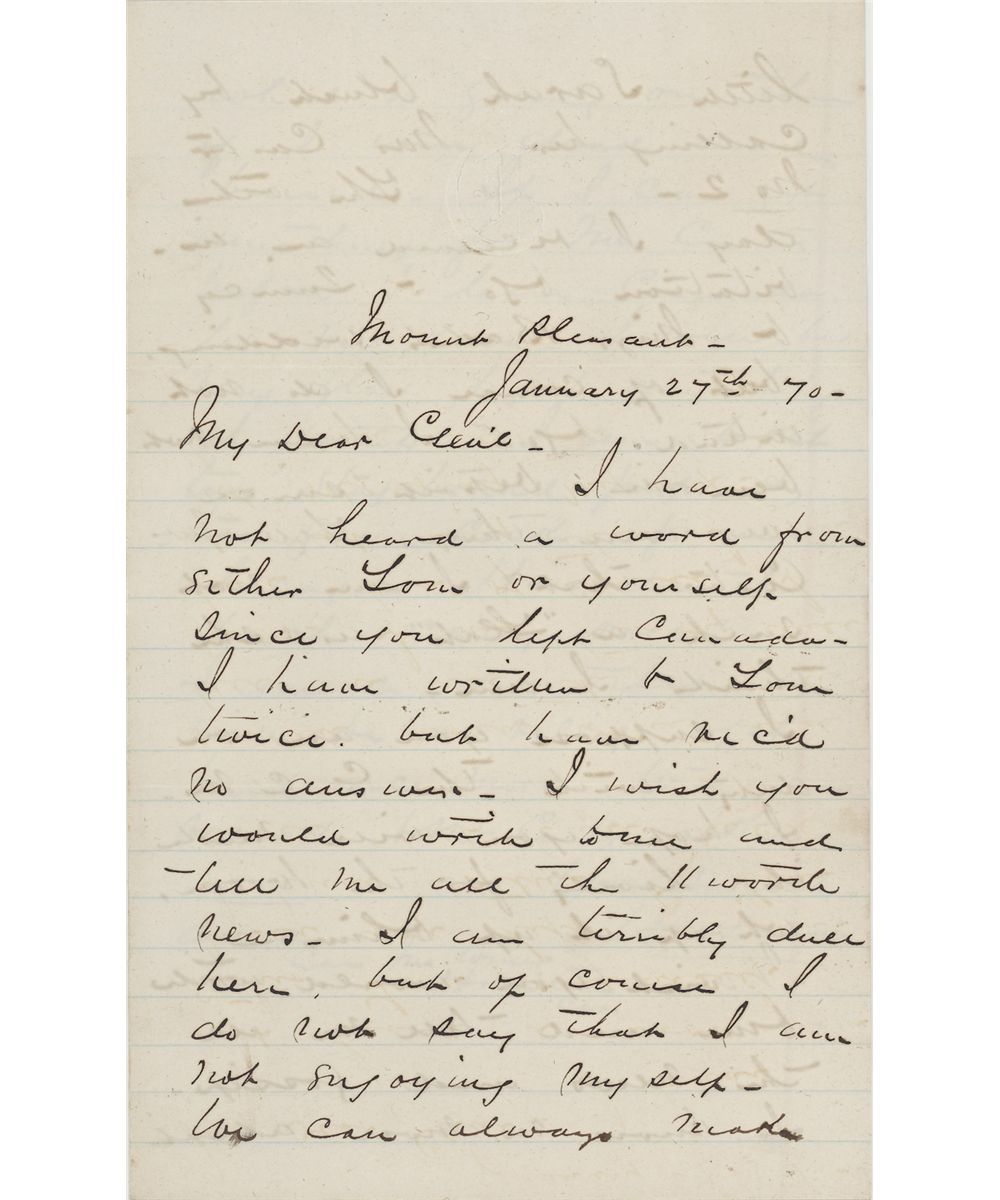 Mount Pleasant -
January 27th 70 -
My Dear Cecil -
I have
not heard a word from
either Tom or yourself
since you left Canada -
I have written to Tom
twice. but have rec'd
no answer - I wish you
would write to me and
tell me all the 11 worth
news - I am terribly dull
here. but of course I
do not say that I am
not enjoying myself -
We can always make